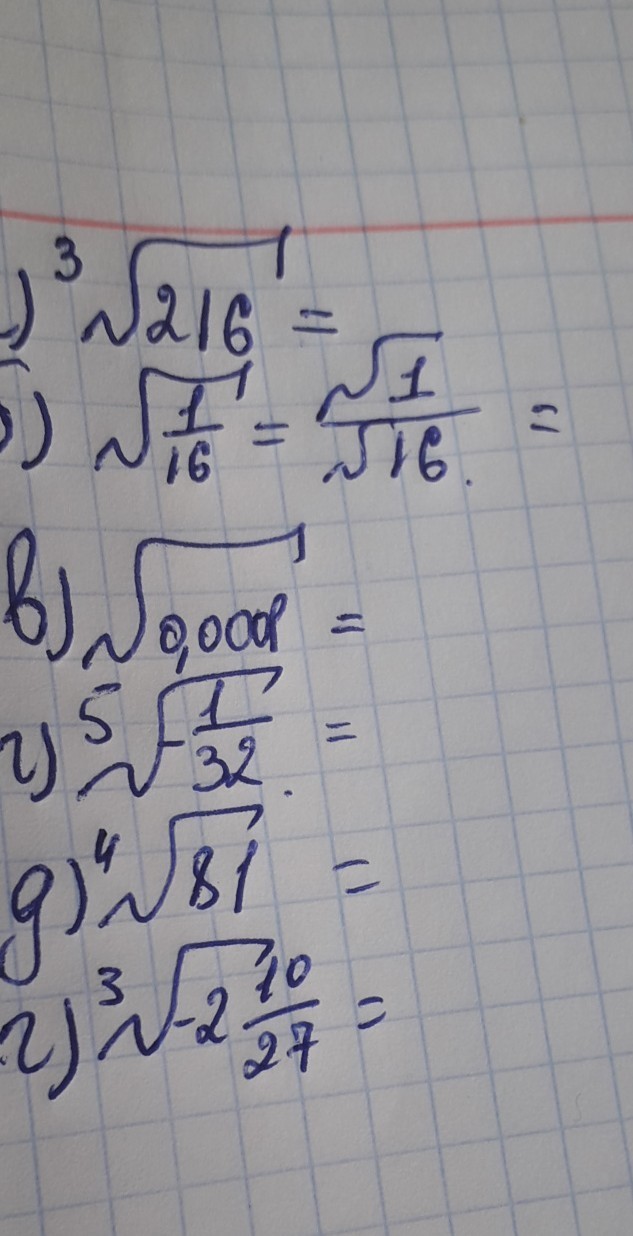 ) ³√216 =
б) √1/16 = √1/√16. =
в) √0,0001 =
г) ⁵√-1/32. =
д) ⁴√81 =
г) ³√-2 10/27 =